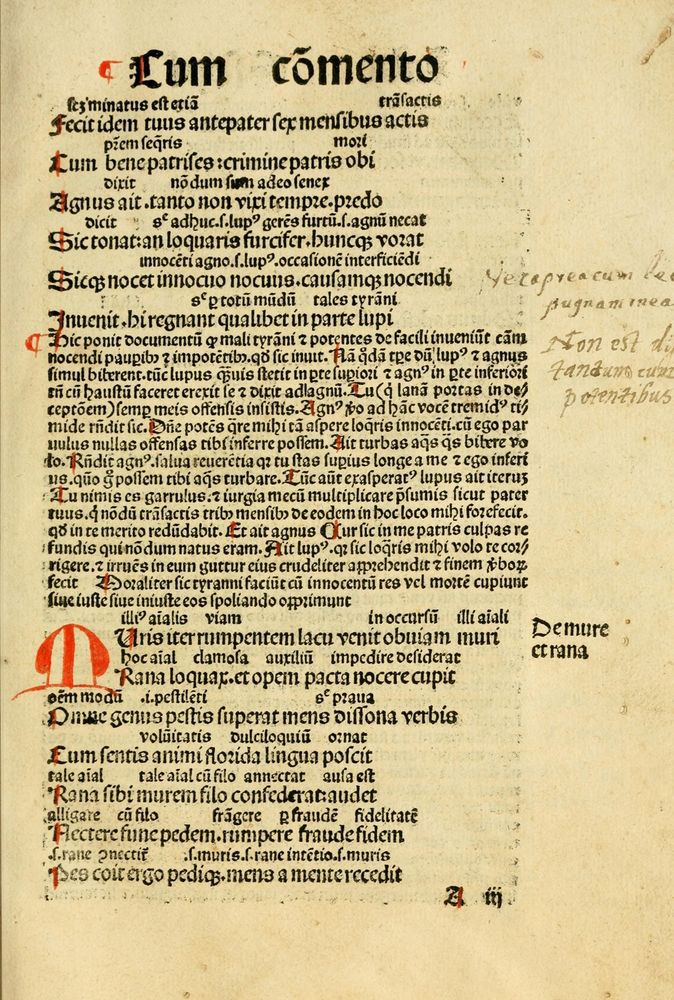 ¶ Cum cōmento
scʒ minatus est etiā trāsactis
Fecit idem tuus antepater sex mensibus actis
pr̄em seqr̄is mori
Cum bene patrises : crimine patris obi
dixit nōdum sum adeo senex
Agnus ait . tanto non vixi tempre . predo
dicit sᶜ adhuc .s. lupꝰ gerēs furtū .s. agnū necat
Sic tonat : an loquaris furcifer . huncqꝫ vorat
innocēti agno .s. lupꝰ . occasionē interficiēdi
Sicqꝫ nocet innocuo nocuus . causamqꝫ nocendi
sᶜ ꝑ totū mūdū tales tyrāni
Inuenit . hi regnant qualibet in parte lupi
¶ Hic ponit documentū ꝙ mali tyrāni ⁊ potentes de facili inueniūt cām
nocendi pauꝑibꝰ ⁊ impotētibꝰ . qd̓ sic inuit . Nā q̄dā tꝑe dū lupꝰ ⁊ agnus
simul biberent . tūc lupus qͣuis stetit in ꝑte suꝑiori ⁊ agnꝰ in ꝑte inferiori
tn̄ cū haustū faceret erexit se ⁊ dixit ad agnū . Tu (ꝙ lanā portas in de⸗
ceptōem) semꝑ meis offensis insistis . Agnꝰ ꝟo ad hāc vocē tremidꝰ ti⸗
mide rn̄dit sic . Dn̄e potēs qͣre mihi tā aspere loqr̄is innocēti . cū ego par
uulus nullas offensas tibi inferre possem . Ait turbas aq̄s qͣs bibere vo
lo . Rn̄dit agnꝰ . salua reuerētia qꝛ tu stas suꝑius longe a me ⁊ ego inferi
us . quō g̊ possem tibi aqͣs turbare . Tūc aūt exasperatꝰ lupus ait iteruʒ
Tu nimis es garrulus . ⁊ iurgia mecū multiplicare p̄sumis sicut pater
tuus . q̇ nōdū trāsactis tribꝰ mensibꝰ de eodem in hoc loco mihi forefecit .
qd̓ in te merito redūdabit . Et ait agnus Cur sic in me patris culpas re
fundis qui nōdum natus eram . Ait lupꝰ . qꝛ sic loqr̄is mihi volo te cor⸗
rigere . ⁊ irruēs in eum guttur eius crudeliter apprehendit ⁊ finem ꝟboꝝ
fecit Moraliter sic tyranni faciūt cū innocentū res vel mortē cupiunt
siue iuste siue iniuste eos spoliando opprimunt
illiꝰ aīalis viam in occursū illi aīali
MUris iter rumpentem lacu venit obuiam muri
De mure
et rana
hoc aīal clamosa auxiliū impedire desiderat
Rana loquax . et opem pacta nocere cupit
oēm modū .i. pestilēti sᶜ praua
Omne genus pestis superat mens dissona verbis
volūtatis dulciloquiū ornat
Cum sentis animi florida lingua poscit
tale aīal tale aīal cū filo annectat ausa est
Rana sibi murem filo confederat : audet
alligare cū filo frāgere ꝑ fraudē fidelitatē
Nectere fune pedem . rumpere fraude fidem
.s. rane ꝯnectit̄ .s. muris .s. rane intētio .s. muris
Pes coit ergo pediqꝫ . mens a mente recedit
A iij
pugnam mea
Non est di
tandum cum
potentibus